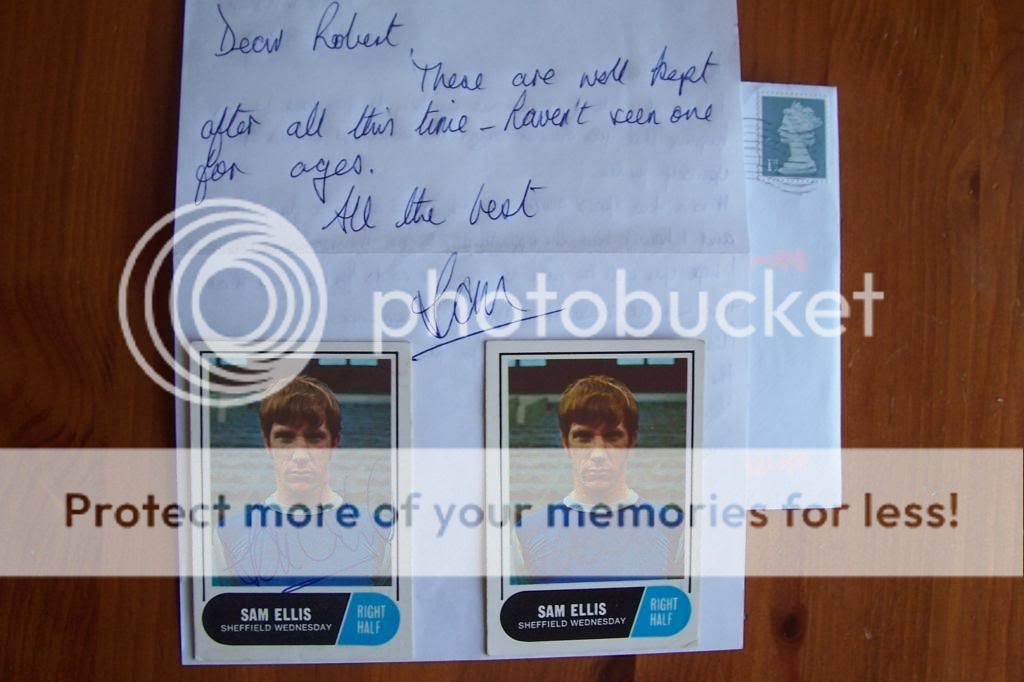 Dear Robert,
These are well kept
after all this time – haven't seen one
for ages.
All the best
Sam
1ST
photobucket
Protect more of your memories for less!
SAM ELLIS
SHEFFIELD WEDNESDAY
RIGHT
HALF
SAM ELLIS
SHEFFIELD WEDNESDAY
RIGHT
HALF